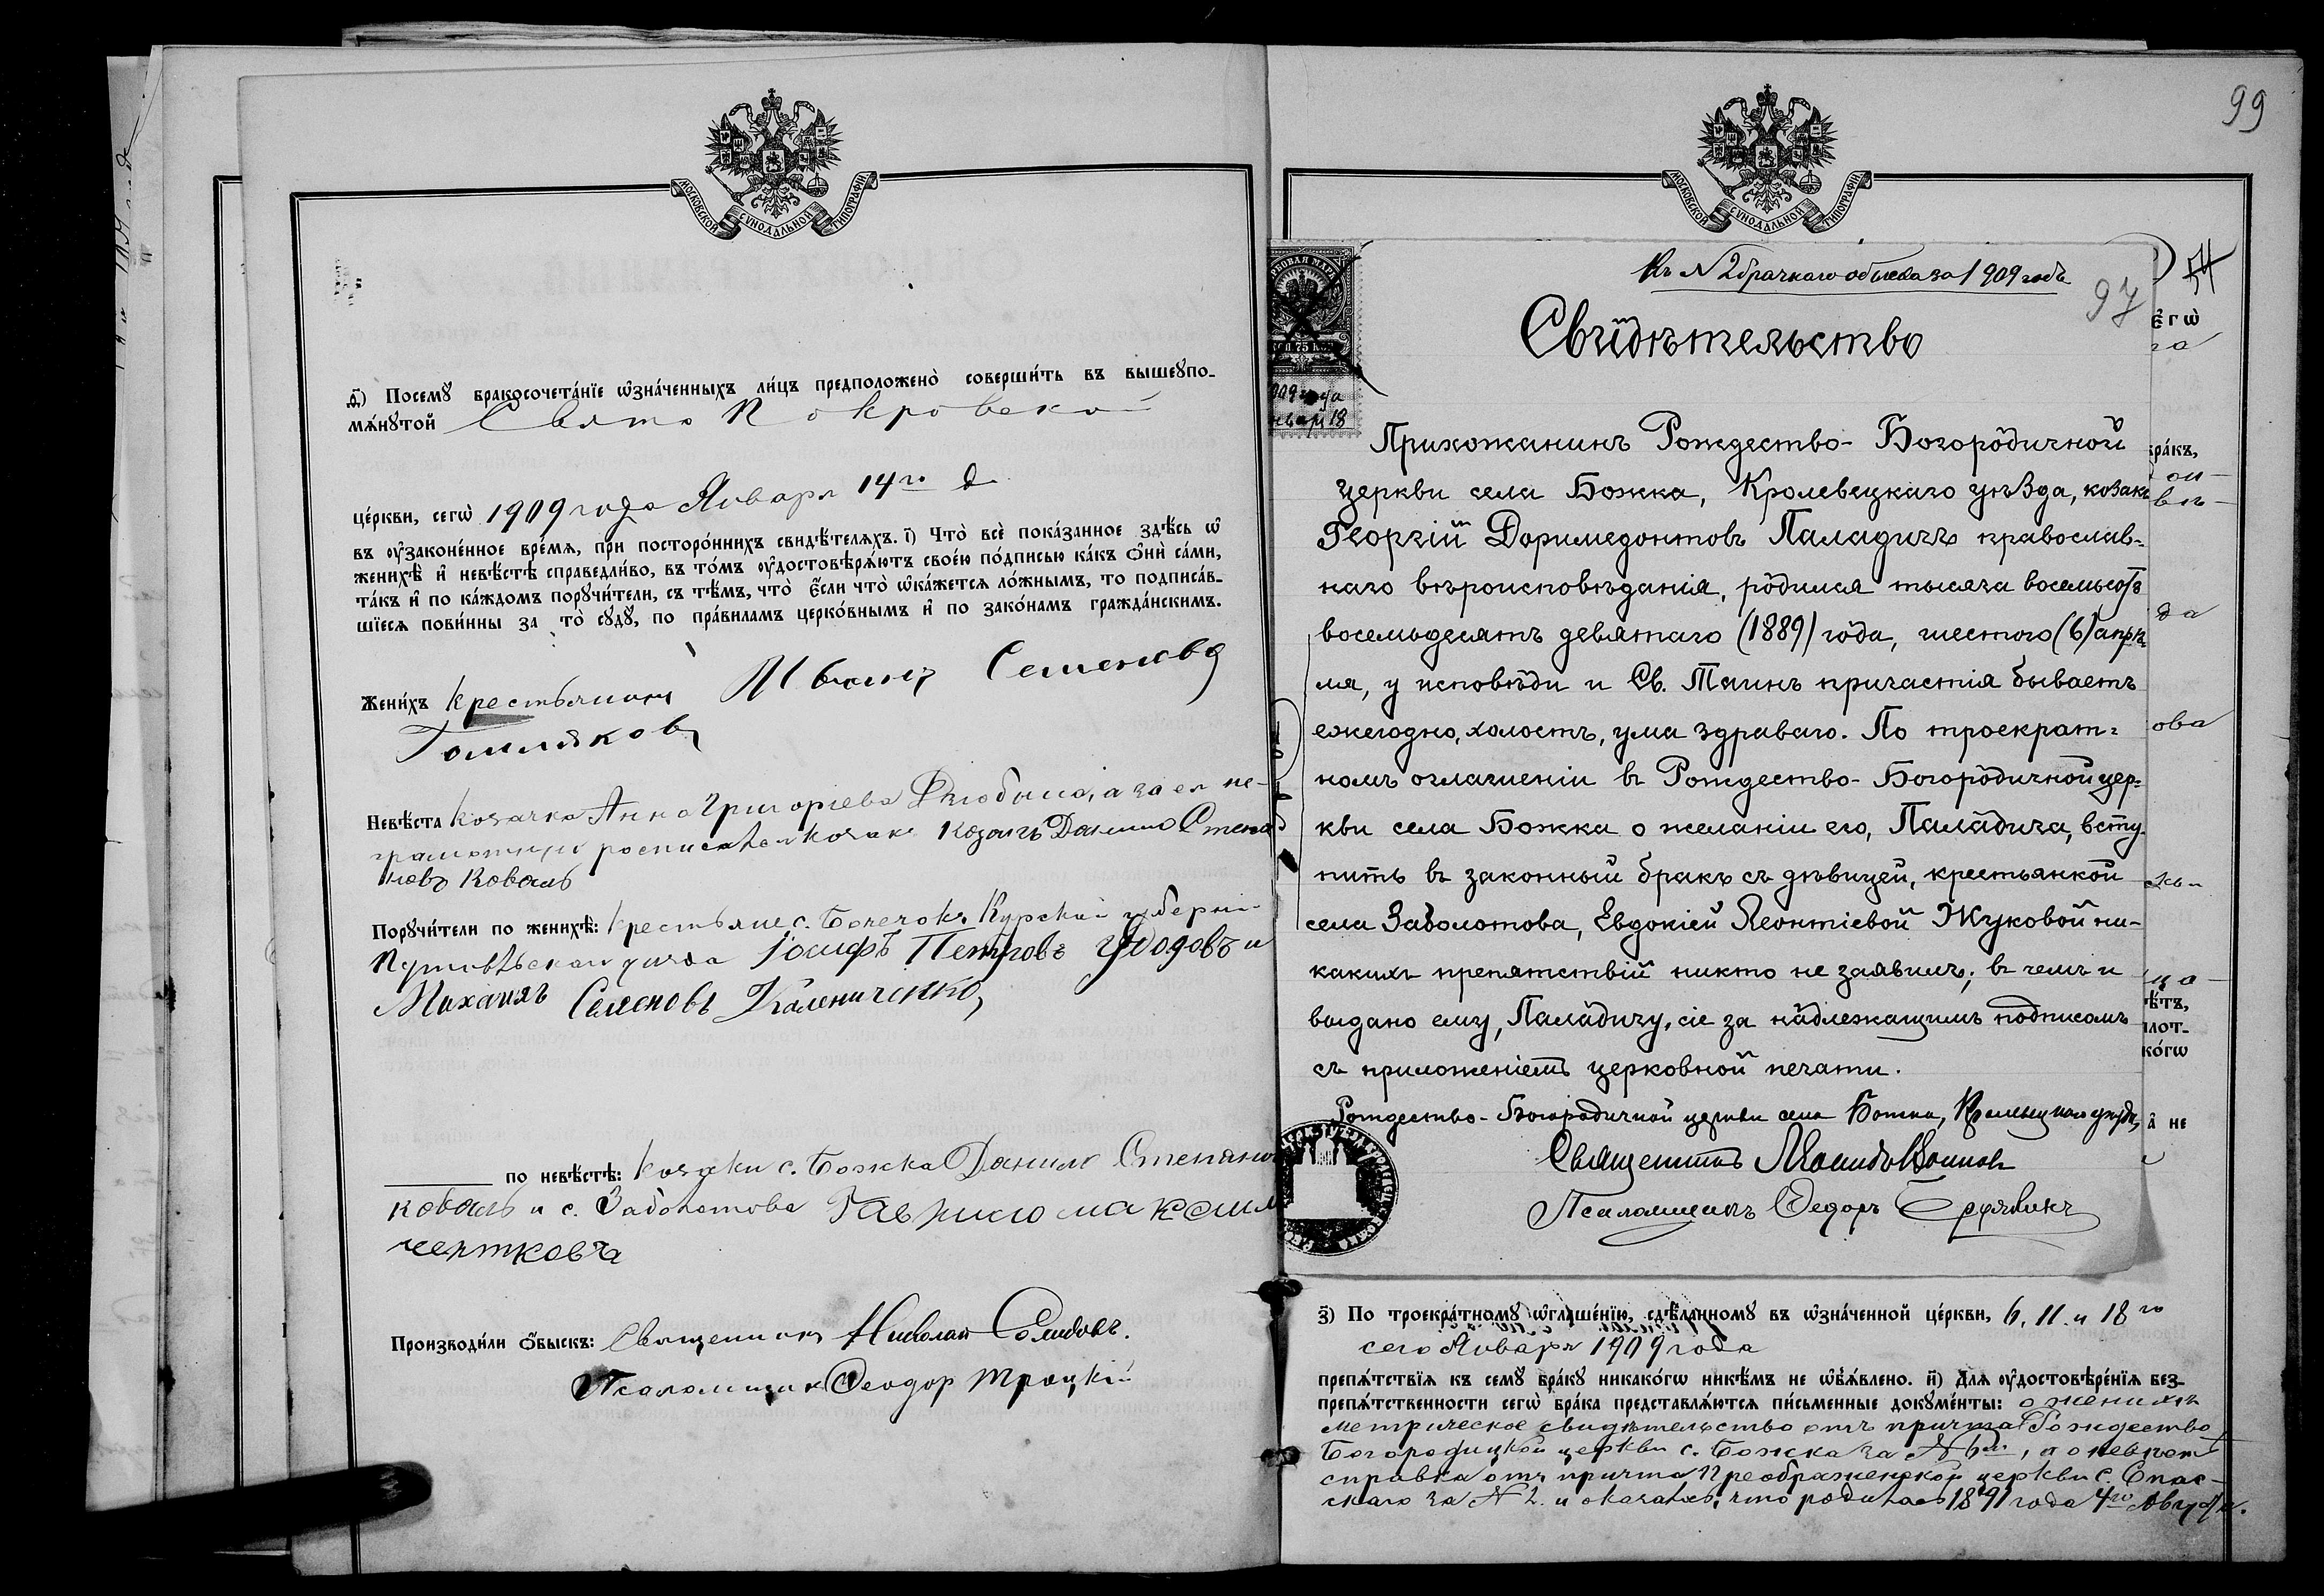 МОСКОВСКОЙ СѴНОДАЛЬНОЙ ТИПОГРАФІИ
Посемꙋ бракосочета́нїе ѡ҆зна́ченныхъ ли́цъ предположено̀ соверши́ть въ вышеꙋпо-
мѧ́нꙋтой Свято Покровской
це́ркви, сегѡ̀ 1909 года Января 14го д
въ ᲂу҆законе́нное вре́мѧ, при посторо́ннихъ свидѣ́телѧхъ. і҃) Что̀ всѐ пока́занное здѣ́сь ѡ҆
женихѣ̀ и҆ невѣ́стѣ справедли́во, въ то́мъ ᲂу҆достовѣрѧ́ютъ свое́ю по́дписью ка́къ ѻ҆нѝ са́ми,
та́къ и҆ по ка́ждомъ порꙋчи́тели, съ тѣ́мъ, что̀ є҆́сли что̀ ѡ҆ка́жетсѧ ло́жнымъ, то подписа́в-
шїесѧ пови́нны за то̀ сꙋдꙋ̀, по пра́виламъ церко́внымъ и҆ по зако́намъ гражда́нскимъ.
Жени́хъ Крестьянинъ Иванъ Семеновъ
Томляковъ
Невѣ́ста козачка Анна Григорiева а за ея не-
грамотную росписался козакъ Козакъ Данило Степа
новъ Коваль
Порꙋчи́тели по женихѣ̀: Крестьяне с. Бочечокъ Курской губернiи
Путивльскаго уѣзда Iосифъ Петровъ Удодовъ и
Михаилъ Семеновъ Калениченко,
по невѣ́стѣ: козаки с. Божка Данило Степанов
коваль и с. Заболотова Гаврило макеим
чертковъ
Производи́ли ѻ҆́быскъ: Священникъ Николай
Псаломщикъ Ѳеодор Троцкій
99
МОСКОВСКОЙ СѴНОДАЛЬНОЙ ТИПОГРАФІИ
Къ №2 брачнаго обыска за 1909 годъ
97
РБОВАЯ МАРК
75 КОП
909 года
нваря 18
Свидѣтельство
є҆гѡ̀
Прихожанинъ Рождество-Богородичной
церкви села Божка, Кролевецкаго уѣзда, козакъ
Георгій Доримедонтовъ Паладичъ православ=
наго вѣроисповѣданія, родился тысяча восемьсотъ
восемьдесятъ девятаго (1889) года, шестого (6) апрѣ
ля, у исповѣди и Св. Таинъ причастія бываетъ
ежегодно, холостъ, ума здраваго. По троекрат=
номъ оглашеніи въ Рождество-Богородичной цер=
кви села Божка о желаніи его, Паладича, всту
пить въ законный бракъ съ дѣвицей, крестьянкой
села Заболотова, Евдокіей Леонтіевой Жуковой ни-
какихъ препятствій никто не заявилъ; въ чемъ и
выдано ему, Паладичу, сіе за надлежащимъ подписомъ
съ приложеніемъ церковной печати.
Рождество-Богородичной церкви села Божка, Кролевецкаго уѣзда,
Священникъ
Псаломщикъ Ѳедоръ
з҃) По троекра́тномꙋ ѡ҆глаше́нїю, сдѣ́ланномꙋ въ ѡ҆зна́ченной це́ркви, 6, 11 и 18го
сего Января 1909 года
препѧ́тствїѧ къ семꙋ̀ бра́кꙋ никако́гѡ никѣ́мъ не ѡ҆б̾ѧ́влено. и҃) Длѧ ᲂу҆достовѣре́нїѧ без-
препѧ́тственности сегѡ̀ бра́ка представлѧ́ютсѧ пи́сьменные докꙋме́нты: о женихѣ
метрическое свидѣтельство отъ причта Рождество
Богородицкой церкви с. Божка за № 6м, а о невѣстѣ
справка отъ причта Преображенской церкви с. Спас-
скаго за № 2. и оказалось, что родилась 1891 года 4го Августа.